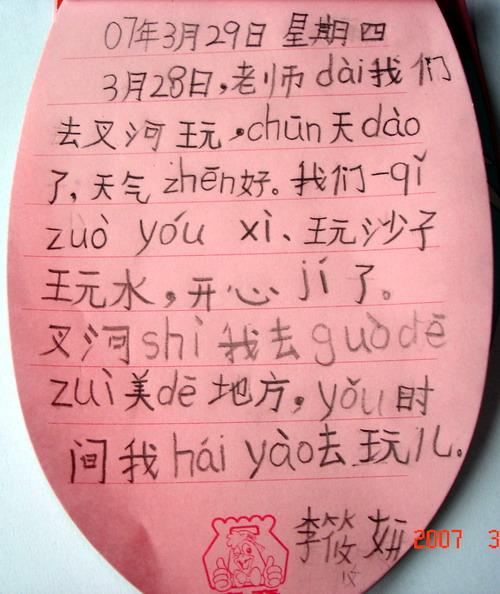 07年3月29日 星期四
3月28日,老师dài我们
去叉河玩,chūn天dào
了,天气zhēn好。我们一qǐ
zuò yóu xì、玩沙子
玩水,开心jí了。
叉河shì我去guòdē
zuì美dē地方,yǒu时
间我hái yào去玩儿。
李筱妍
2007 3